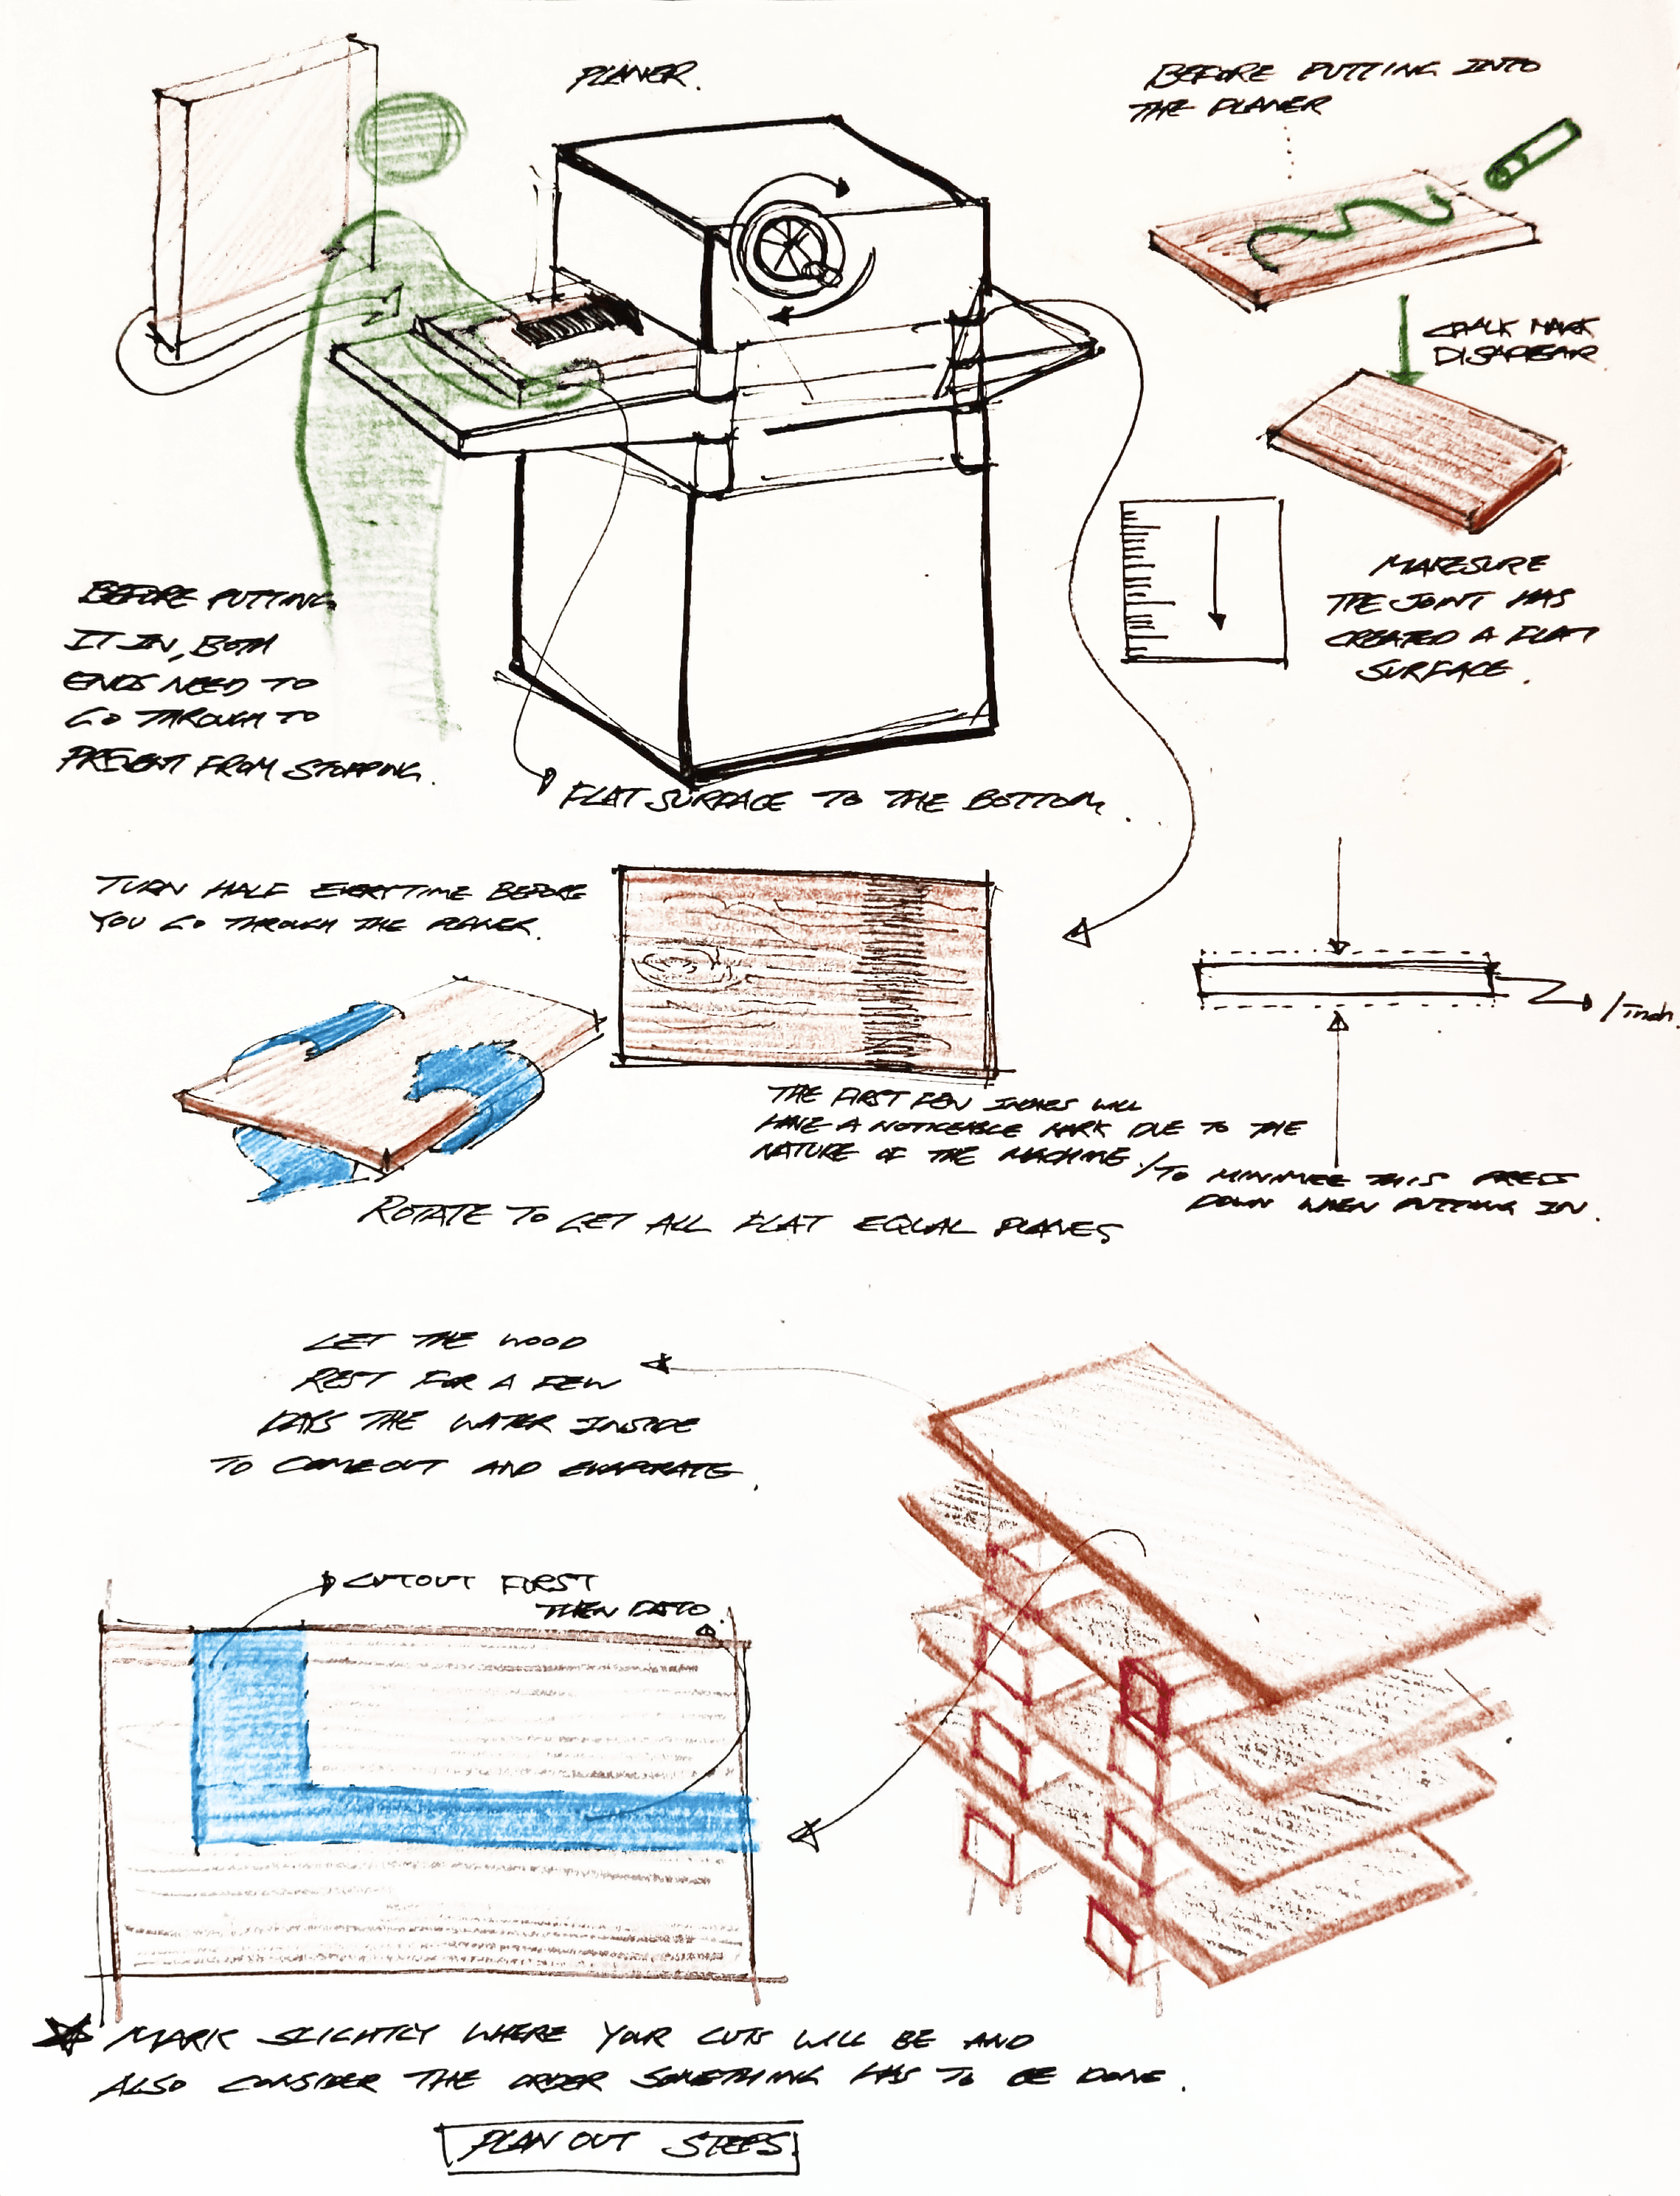 PLANER.
BEFORE PUTTING INTO
THE PLANER
CHALK MARK
DISAPPEAR
MAKESURE
THE JOINT HAS
CREATED A FLAT
SURFACE.
BEFORE PUTTING
IT IN, BOTH
ENDS NEED TO
GO THROUGH TO
PREVENT FROM STOPPING.
FLAT SURFACE TO THE BOTTOM.
TURN HALF EVERYTIME BEFORE
YOU GO THROUGH THE PLANER.
1 inch.
THE FIRST FEW INCHES WILL
HAVE A NOTICEABLE MARK DUE TO THE
NATURE OF THE MACHINE. / TO MINIMIZE THIS PRESS
DOWN WHEN PUTTING IN.
ROTATE TO GET ALL FLAT EQUAL PLANES
LET THE WOOD
REST FOR A FEW
DAYS THE WATER INSIDE
TO COMEOUT AND EVAPORATE.
CUTOUT FIRST
THEN DATO.
MARK SLIGHTLY WHERE YOUR CUTS WILL BE AND
ALSO CONSIDER THE ORDER SOMETHING HAS TO BE DONE.
PLAN OUT STEPS